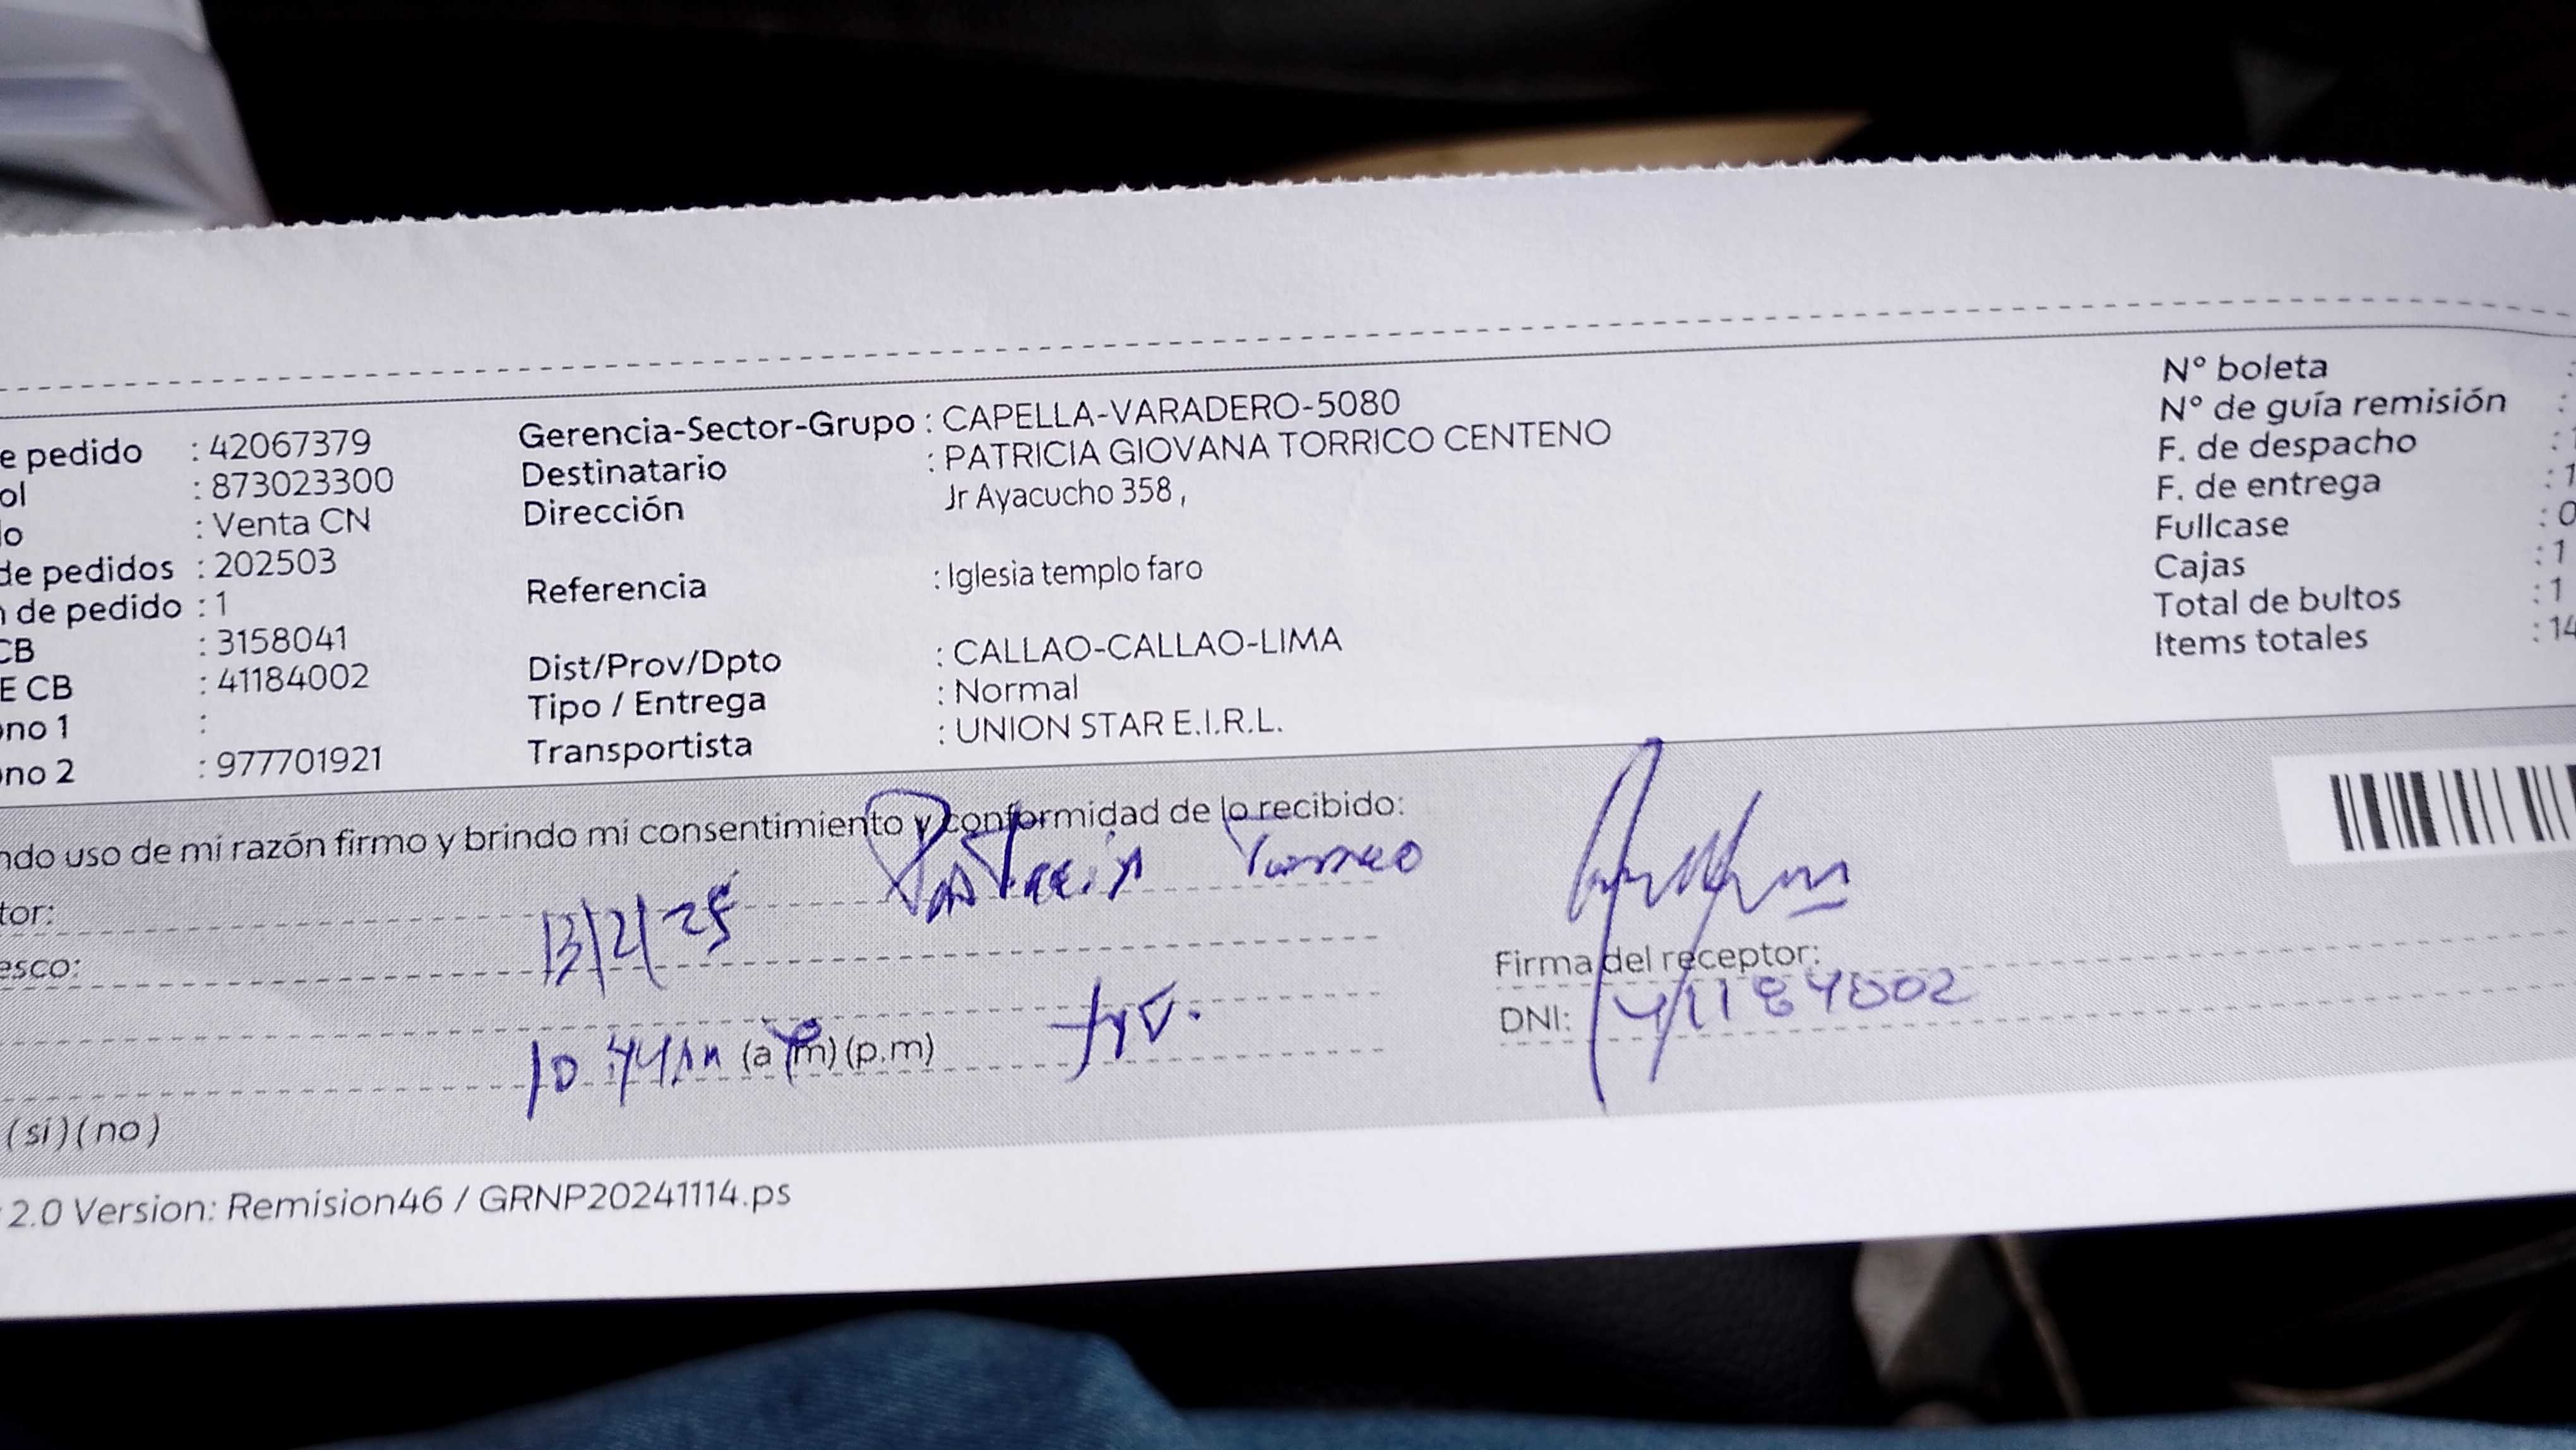 e pedido : 42067379
ol : 873023300
do : Venta CN
de pedidos : 202503
n de pedido : 1
CB : 3158041
E CB : 41184002
ono 1 :
ono 2 : 977701921
Gerencia-Sector-Grupo : CAPELLA-VARADERO-5080
Destinatario : PATRICIA GIOVANA TORRICO CENTENO
Dirección Jr Ayacucho 358 ,
Referencia : Iglesia templo faro
Dist/Prov/Dpto : CALLAO-CALLAO-LIMA
Tipo / Entrega : Normal
Transportista : UNION STAR E.I.R.L.
N° boleta :
N° de guía remisión :
F. de despacho : 1
F. de entrega : 1
Fullcase : 0
Cajas : 1
Total de bultos : 1
Items totales : 14
ndo uso de mi razón firmo y brindo mi consentimiento y conformidad de lo recibido:
tor: Patricia
esco: 13/2/25
10:44 am (a.m) (p.m)
Firma del receptor:
DNI: 41184002
(si) (no)
2.0 Version: Remision46 / GRNP20241114.ps